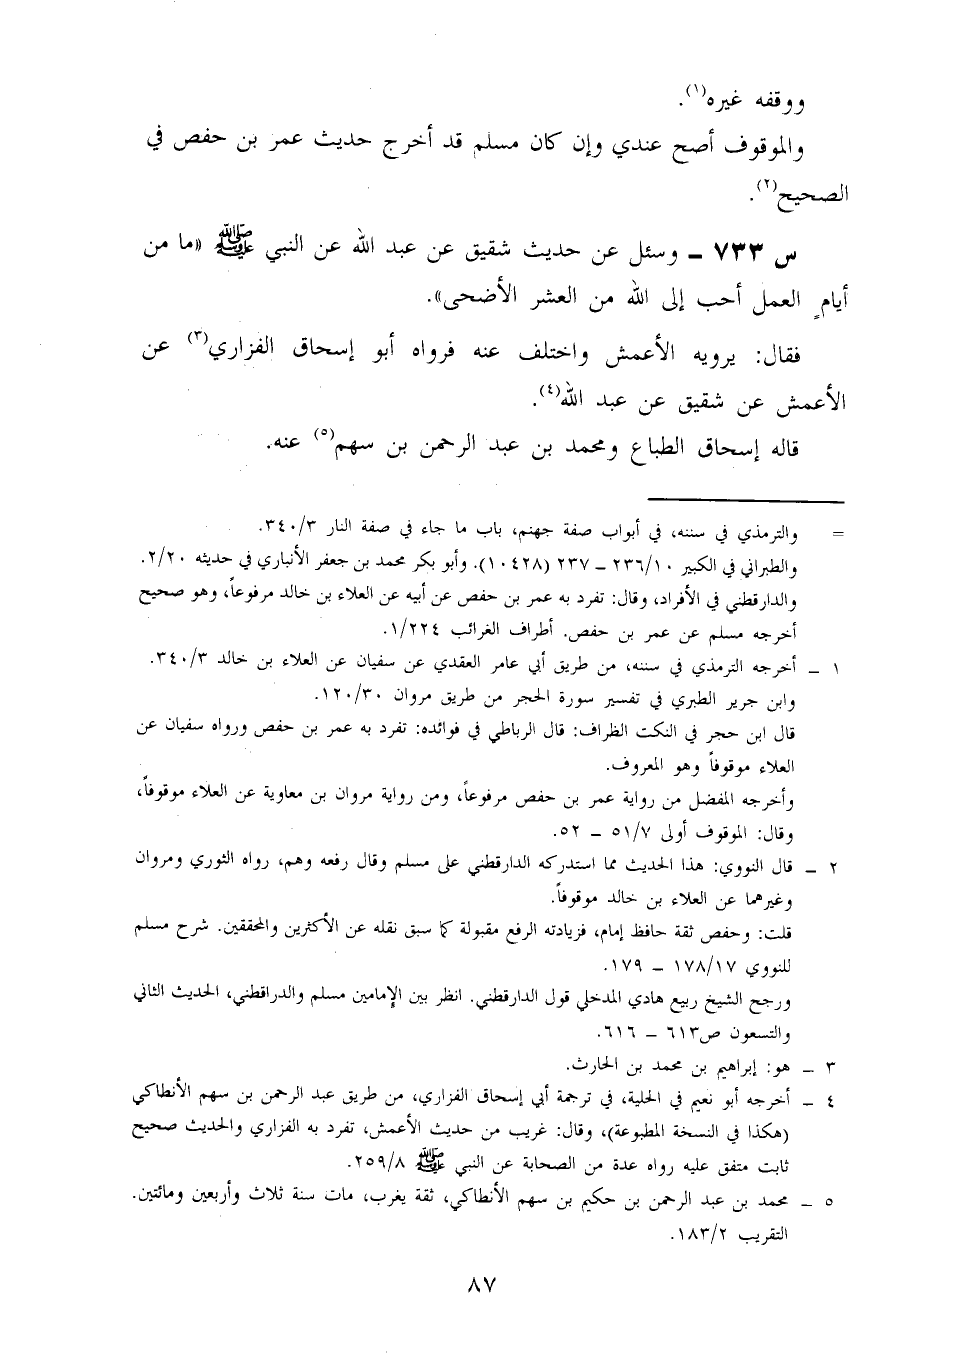 ووقفه غيره(١).
والموقوف أصح عندي وإن كان مسلم قد أخرج حديث عمر بن حفص في
الصحيح(٢).
س ٧٣٣ ـ وسئل عن حديث شقيق عن عبد الله عن النبي ﷺ «ما من
أيامٍ العمل أحب إلى الله من العشر الأضحى».
فقال: يرويه الأعمش واختلف عنه فرواه أبو إسحاق الفزاري(٣) عن
الأعمش عن شقيق عن عبد الله(٤).
قاله إسحاق الطباع ومحمد بن عبد الرحمن بن سهم(٥) عنه.
= والترمذي في سننه، في أبواب صفة جهنم، باب ما جاء في صفة النار ٣/٣٤٠.
والطبراني في الكبير ١٠/٢٣٦ ـ ٢٣٧ (١٠٤٢٨). وأبو بكر محمد بن جعفر الأنباري في حديثه ٢/٢٠.
والدارقطني في الأفراد، وقال: تفرد به عمر بن حفص عن أبيه عن العلاء بن خالد مرفوعاً، وهو صحيح
أخرجه مسلم عن عمر بن حفص. أطراف الغرائب ١/٢٢٤.
١ ـ أخرجه الترمذي في سننه، من طريق أبي عامر العقدي عن سفيان عن العلاء بن خالد ٣/٣٤٠.
وابن جرير الطبري في تفسير سورة الحجر من طريق مروان ١٢٠/٣٠.
قال ابن حجر في النكت الظراف: قال الرباطي في فوائده: تفرد به عمر بن حفص ورواه سفيان عن
العلاء موقوفاً وهو المعروف.
وأخرجه المفضل من رواية عمر بن حفص مرفوعاً، ومن رواية مروان بن معاوية عن العلاء موقوفاً،
وقال: الموقوف أولى ٧/٥١ ـ ٥٢.
٢ ـ قال النووي: هذا الحديث مما استدركه الدارقطني على مسلم وقال رفعه وهم، رواه الثوري ومروان
وغيرهما عن العلاء بن خالد موقوفاً.
قلت: وحفص ثقة حافظ إمام، فزيادته الرفع مقبولة كما سبق نقله عن الأكثرين والمحققين. شرح مسلم
للنووي ١٧/١٧٨ ـ ١٧٩.
ورجح الشيخ ربيع هادي المدخلي قول الدارقطني. انظر بين الإمامين مسلم والدراقطني، الحديث الثاني
والتسعون ص٦١٣ ـ ٦١٦.
٣ ـ هو: إبراهيم بن محمد بن الحارث.
٤ ـ أخرجه أبو نعيم في الحلية، في ترجمة أبي إسحاق الفزاري، من طريق عبد الرحمن بن سهم الأنطاكي
(هكذا في النسخة المطبوعة)، وقال: غريب من حديث الأعمش، تفرد به الفزاري والحديث صحيح
ثابت متفق عليه رواه عدة من الصحابة عن النبي ﷺ ٨/٢٥٩.
٥ ـ محمد بن عبد الرحمن بن حكيم بن سهم الأنطاكي، ثقة يغرب، مات سنة ثلاث وأربعين ومائتين.
التقريب ٢/١٨٣.
٨٧